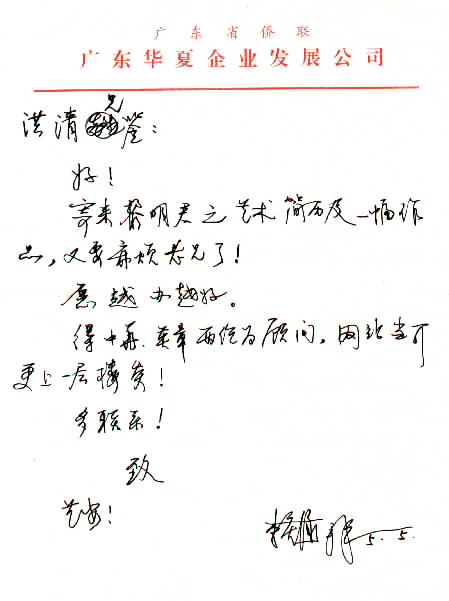 广东省侨联
广东华夏企业发展公司
兄
洪清鉴：
好！
寄来黎明君之艺术简历及一幅作
品，又要麻烦老兄了！
愿越办越好。
得中再、章两位为顾问，网站当可
更上一层楼矣！
多联系！
致
艺安！
5.5.